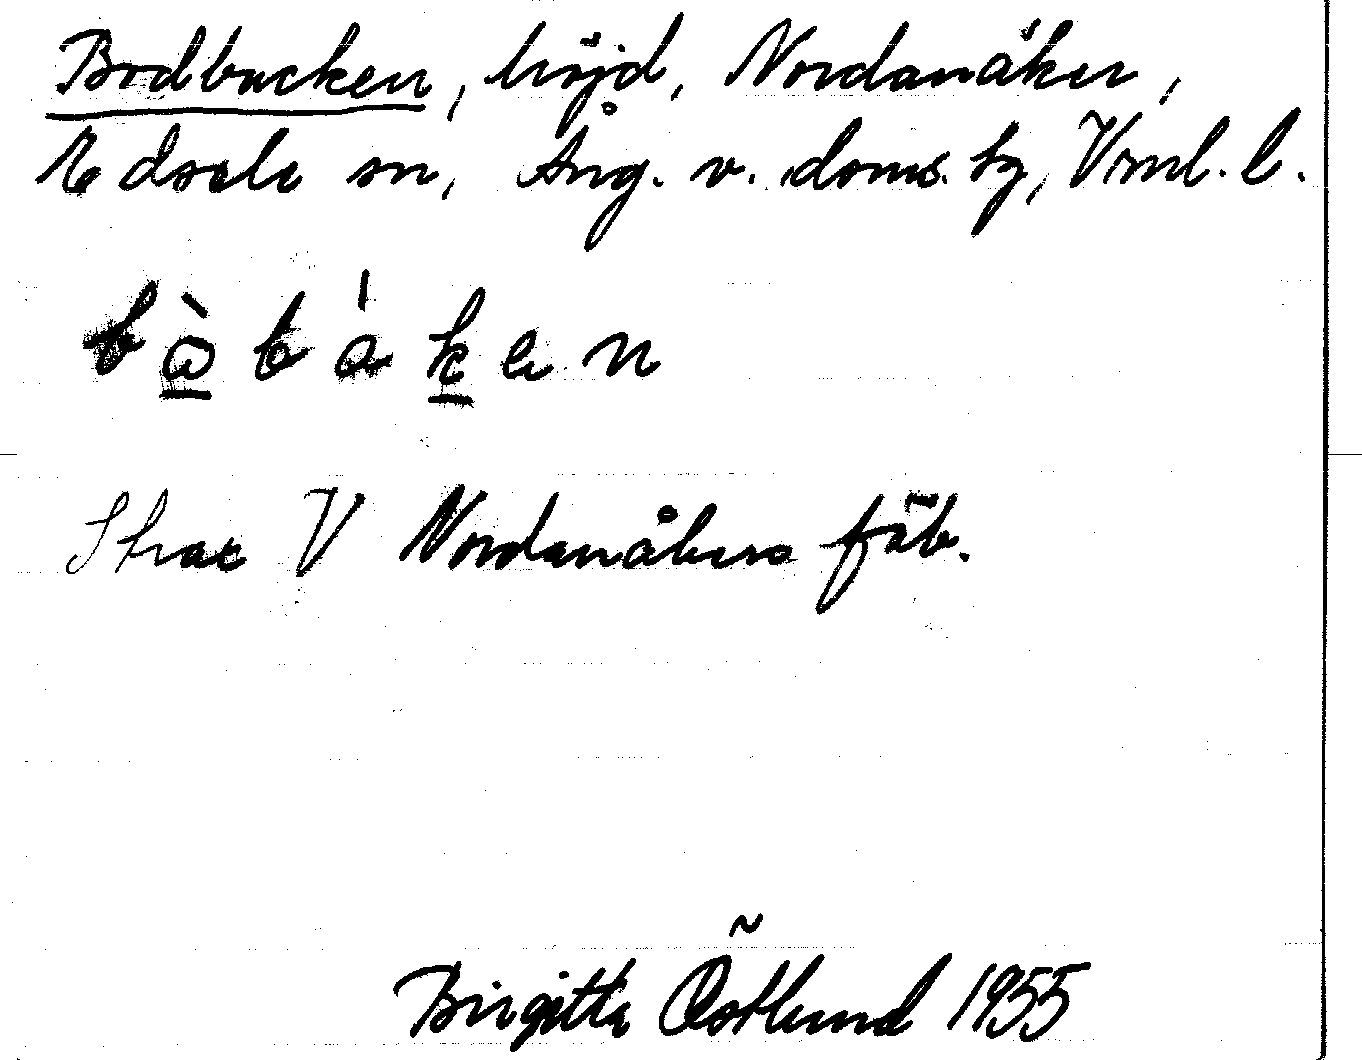 Bodbacken, höjd, Nordanåker,
Edsele sn, Ång. v. doms. tg, Vnml. l.
Strax V Nordanåkers fäb.
Birgitta Östlund 1955